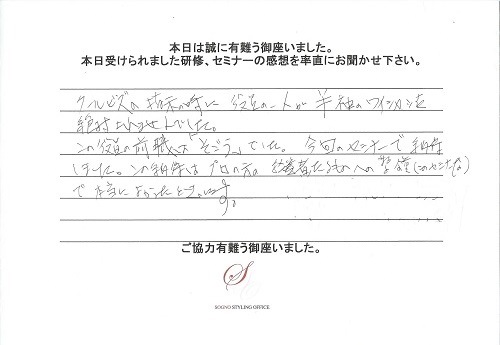 本日は誠に有難う御座いました。
本日受けられました研修、セミナーの感想を率直にお聞かせ下さい。
クールビズの指示の時に 役員の一人が 半袖のワイシャツを
絶対 ませんでした。
この役員の前職は「そごう」でした。 今回のセミナーで 納得
しました。この納得は プロの方の 経営者たちへの 警鐘(このセミナー)
で 本当に よかったと思います。
ご協力有難う御座いました。
S
SOGNO STYLING OFFICE